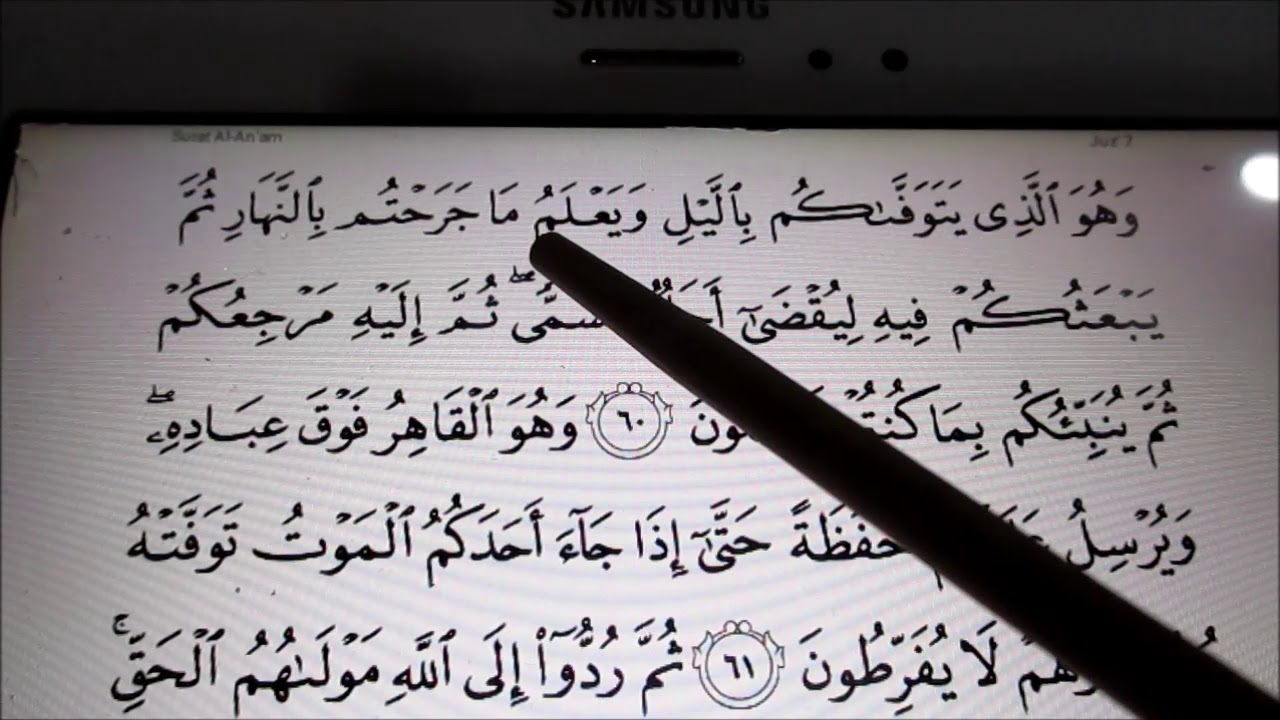 SAMSUNG
Surat Al-An'am
Juz 7
وَهُوَ ٱلَّذِى يَتَوَفَّىٰكُم بِٱلَّيْلِ وَيَعْلَمُ مَا جَرَحْتُم بِٱلنَّهَارِ ثُمَّ
يَبْعَثُكُمْ فِيهِ لِيُقْضَىٰٓ ثُمَّ إِلَيْهِ مَرْجِعُكُمْ
ثُمَّ يُنَبِّئُكُم بِمَا ٦٠ وَهُوَ ٱلْقَاهِرُ فَوْقَ عِبَادِهِۦ ۖ
وَيُرْسِلُ حَفَظَةً حَتَّىٰٓ إِذَا جَآءَ أَحَدَكُمُ ٱلْمَوْتُ تَوَفَّتْهُ
لَا يُفَرِّطُونَ ٦١ ثُمَّ رُدُّوٓا۟ إِلَى ٱللَّهِ مَوْلَىٰهُمُ ٱلْحَقِّ ۚ